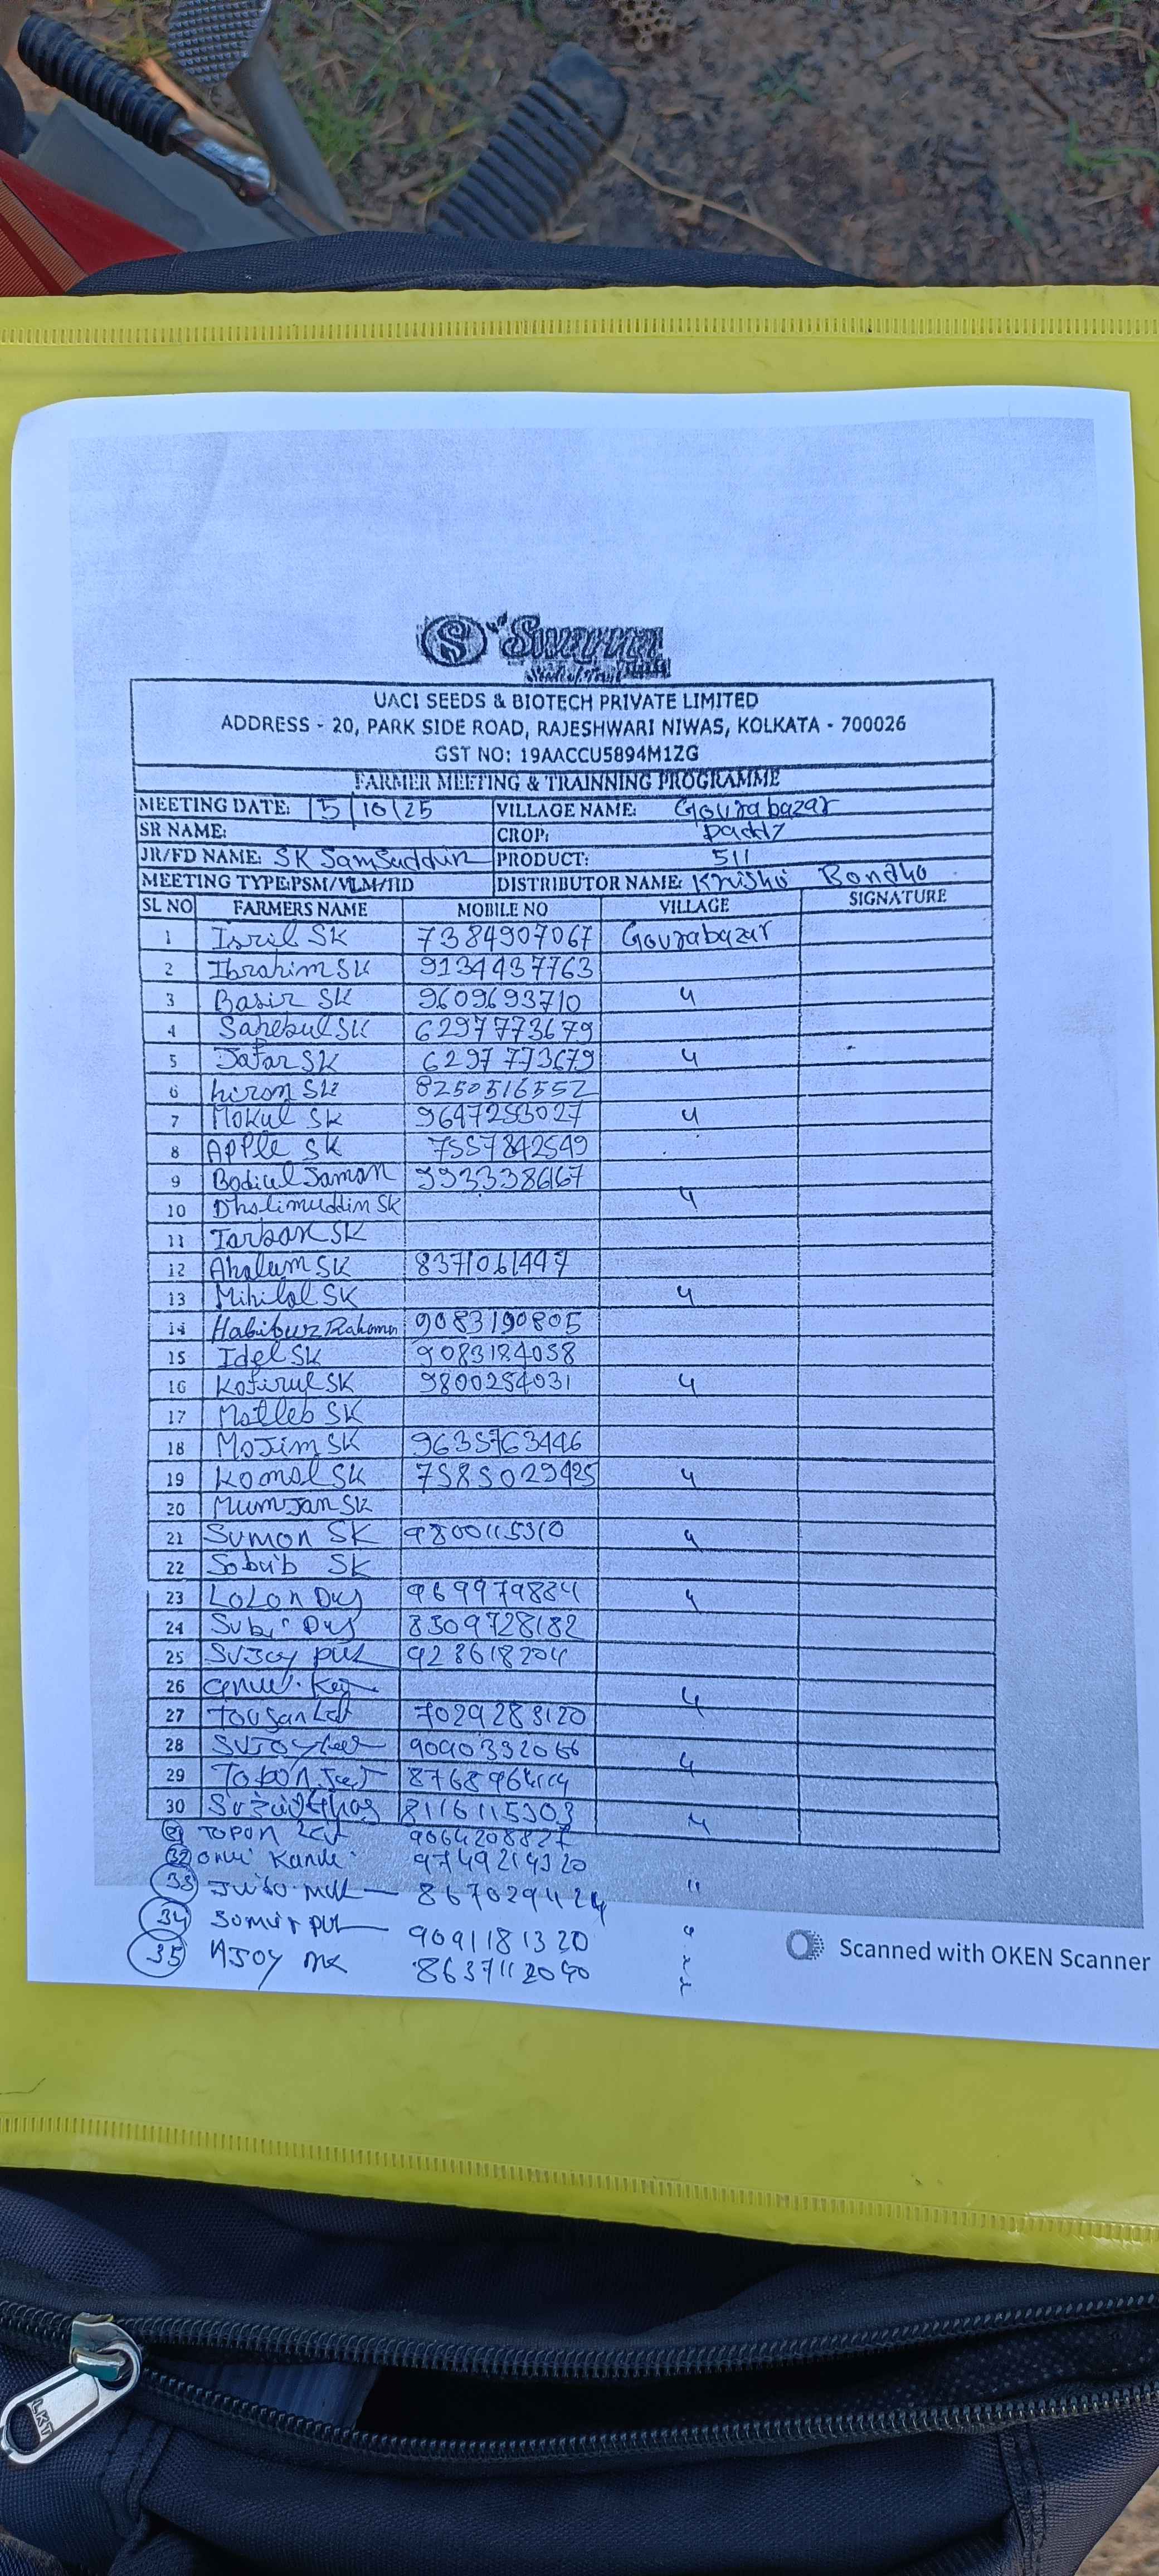 Swarna
UACI SEEDS & BIOTECH PRIVATE LIMITED
ADDRESS - 20, PARK SIDE ROAD, RAJESHWARI NIWAS, KOLKATA - 700026
GST NO: 19AACCU5894M1ZG
FARMER MEETING & TRAINNING PROGRAMME
MEETING DATE: 15/10/25 VILLAGE NAME: Gourabazar
SR NAME: CROP: Paddy
JR/FD NAME: SK Samsuddin PRODUCT: 511
MEETING TYPE:PSM/VLM/FID DISTRIBUTOR NAME: Krishi Bondhu
SL NO FARMERS NAME MOBILE NO VILLAGE SIGNATURE
1 Isril SK 7384907067 Gourabazar
2 Ibrahim SK 9134437763
3 Basir SK 9609693710 "
4 Sahebul SK 6297773679
5 Jafar SK 6297773679 "
6 hiron SK 8250516552
7 Mokul SK 9647253027 "
8 APPle SK 7557842549
9 Bodiul Jaman 9933386167
10 Dholimuddin SK "
11 Tarban SK
12 Ahalum SK 8371061497
13 Mihilal SK "
14 Habibur Rahaman 9083190805
15 Idel SK 9083184058
16 Kofirul SK 9800254031 "
17 Motleb SK
18 Mojim SK 9635763446
19 Komal SK 7585029425 "
20 Mumjan SK
21 Sumon SK 9800115310 "
22 Sobuib SK
23 LOLON Das 969979884 "
24 Subir Das 8309728182
25 Sujoy 928618204
26 "
27 Tousan Let 7029283120
28 Sujoy 9090332066 "
29 Tobon 876896
30 8116115303 "
31 TOPON Let 9064208827
32 9749214320
33 8670294124 "
34 Somir 9091181320 "
35 AJOY 8637112040 "
Scanned with OKEN Scanner
LKT